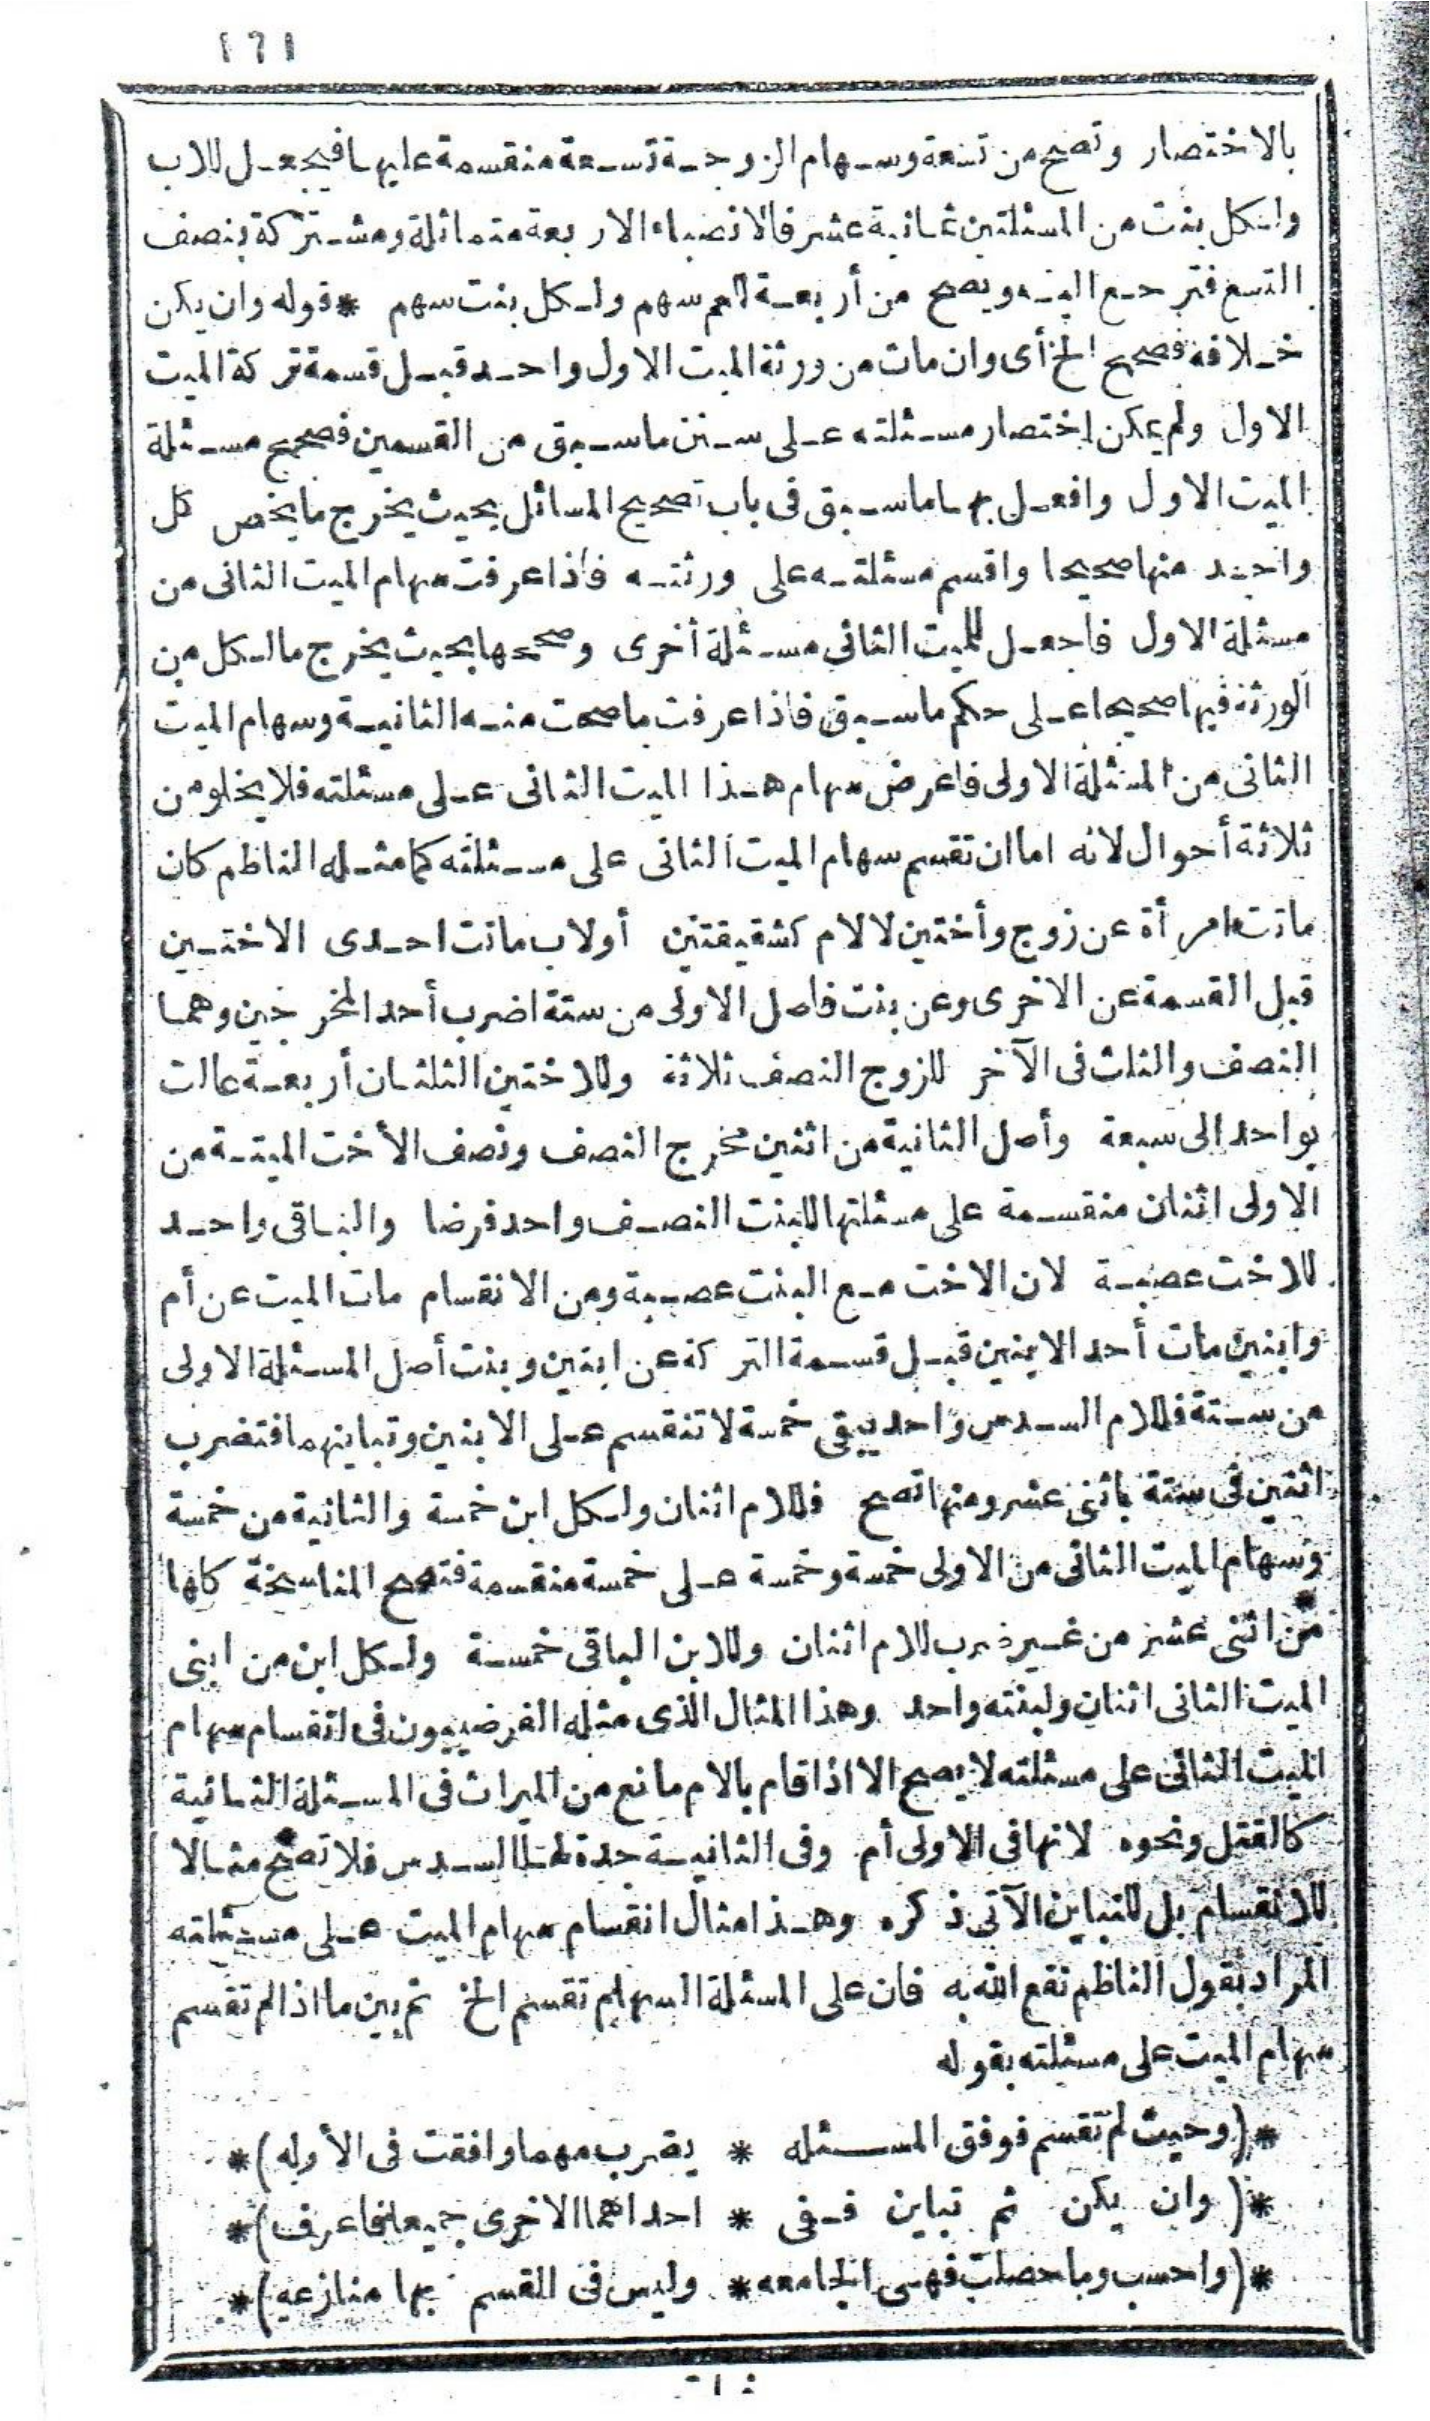 ١٦١
بالاختصار وتصح من تسعة وسهام الزوجة تسعة منقسمة عليها فيجعل للاب
ولكل بنت من المسئلتين ثمانية عشر فالانصباء الاربعة متماثلة ومشتركة بنصف
التسع فترجع اليه ويصح من أربعة للعم سهم ولكل بنت سهم * قوله وان يكن
خلافه فصحح الخ أى وان مات من ورثة الميت الاول واحد قبل قسمة تركة الميت
الاول ولم يمكن اختصار مسئلته على سنن ماسبق من القسمين فصحح مسئلة
الميت الاول وافعل بها ماسبق فى باب تصحيح المسائل بحيث يخرج مايخص كل
واحد منها صحيحا واقسم مسئلته على ورثته فاذا عرفت سهام الميت الثانى من
مسئلة الاول فاجعل للميت الثانى مسئلة أخرى وصححها بحيث يخرج مالكل من
الورثة فيها صحيحا على حكم ماسبق فاذا عرفت ما صحت منه الثانية وسهام الميت
الثانى من المسئلة الاولى فاعرض سهام هذا الميت الثانى على مسئلته فلا يخلو من
ثلاثة أحوال لانه اما ان تقسم سهام الميت الثانى على مسئلته كما مثله الناظم كان
ماتت امرأة عن زوج وأختين لالام كشقيقتين أولاب ماتت احدى الاختين
قبل القسمة عن الاخرى وعن بنت فاصل الاولى من ستة اضرب أحد المخرجين وهما
النصف والثلث فى الآخر للزوج النصف ثلاثة وللاختين الثلثان أربعة عالت
بواحد الى سبعة وأصل الثانية من اثنين مخرج النصف ونصف الأخت الميتة من
الاولى اثنان منقسمة على مسئلتها للبنت النصف واحد فرضا والباقى واحد
للاخت عصبة لان الاخت مع البنت عصبة ومن الانقسام مات الميت عن أم
وابنين مات أحد الابنين قبل قسمة التركة عن ابنين وبنت أصل المسئلة الاولى
من ستة فللام السدس واحد يبقى خمسة لاتنقسم على الابنين وتباينهما فتضرب
اثنين فى ستة باثنى عشر ومنها تصح فللام اثنان ولكل ابن خمسة والثانية من خمسة
وسهام الميت الثانى من الاولى خمسة وخمسة على خمسة منقسمة فتصح المناسخة كلها
من اثنى عشر من غير ضرب للام اثنان وللابن الباقى خمسة ولكل ابن من ابنى
الميت الثانى اثنان ولبنته واحد وهذا المثال الذى مثله الفرضيون فى انقسام سهام
الميت الثانى على مسئلته لايصح الا اذا قام بالام مانع من الميراث فى المسئلة الثانية
كالقتل ونحوه لانها فى الاولى أم وفى الثانية جدة لها السدس فلا تصح مثالا
للانقسام بل للتباين الآتى ذكره وهذا مثال انقسام سهام الميت على مسئلته
المراد بقول الناظم نفع الله به فان على المسئلة السهام تقسم الخ ثم بين ما اذا لم تقسم
سهام الميت على مسئلته بقوله
*(وحيث لم تقسم فوفق المسئله * يضرب مهما وافقت فى الأوله)*
*(وان يكن ثم تباين ففى * احداهما الاخرى جميعا فاعرف)*
*(واحسب وما حصلت فهى الجامعه * وليس فى القسم بها منازعه)*